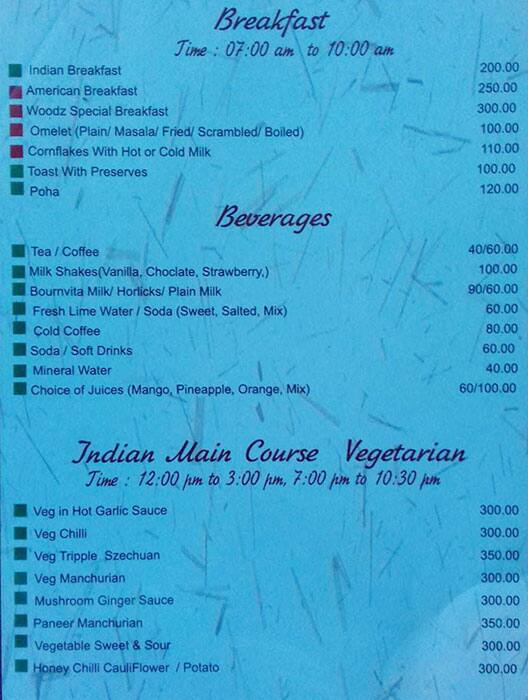 Breakfast
Time : 07:00 am to 10:00 am
Indian Breakfast 200.00
American Breakfast 250.00
Woodz Special Breakfast 300.00
Omelet (Plain/ Masala/ Fried/ Scrambled/ Boiled) 100.00
Cornflakes With Hot or Cold Milk 110.00
Toast With Preserves 100.00
Poha 120.00
Beverages
Tea / Coffee 40/60.00
Milk Shakes(Vanilla, Choclate, Strawberry,) 100.00
Bournvita Milk/ Horlicks/ Plain Milk 90/60.00
Fresh Lime Water / Soda (Sweet, Salted, Mix) 60.00
Cold Coffee 80.00
Soda / Soft Drinks 60.00
Mineral Water 40.00
Choice of Juices (Mango, Pineapple, Orange, Mix) 60/100.00
Indian Main Course Vegetarian
Time : 12:00 pm to 3:00 pm, 7:00 pm to 10:30 pm
Veg in Hot Garlic Sauce 300.00
Veg Chilli 300.00
Veg Tripple Szechuan 350.00
Veg Manchurian 300.00
Mushroom Ginger Sauce 300.00
Paneer Manchurian 350.00
Vegetable Sweet & Sour 300.00
Honey Chilli CauliFlower / Potato 300.00